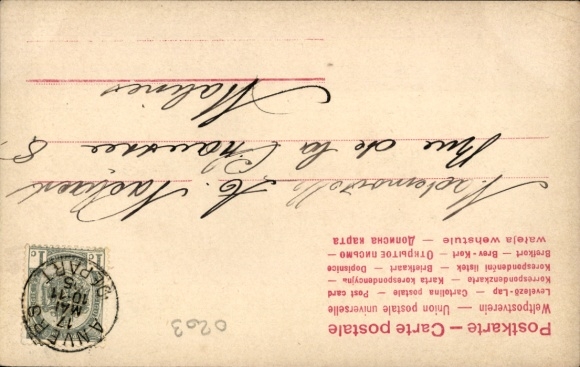 Postkarte – Carte postale
Weltpostverein — Union postale universelle
Levelező-Lap — Cartolina postale — Post card
Korrespondenzkarte — Karta korespondencyjna —
Korespondenční lístek — Briefkaart — Dopisnice
Brefkort — Brev-Kort — Открытое письмо —
waleja wehstule — Дописна карта
ANVERS
17
MAI
10-11
05
DÉPART
1c 1c
Mademoiselle A.
Rue de la Chaussée 8.
Malines
0203